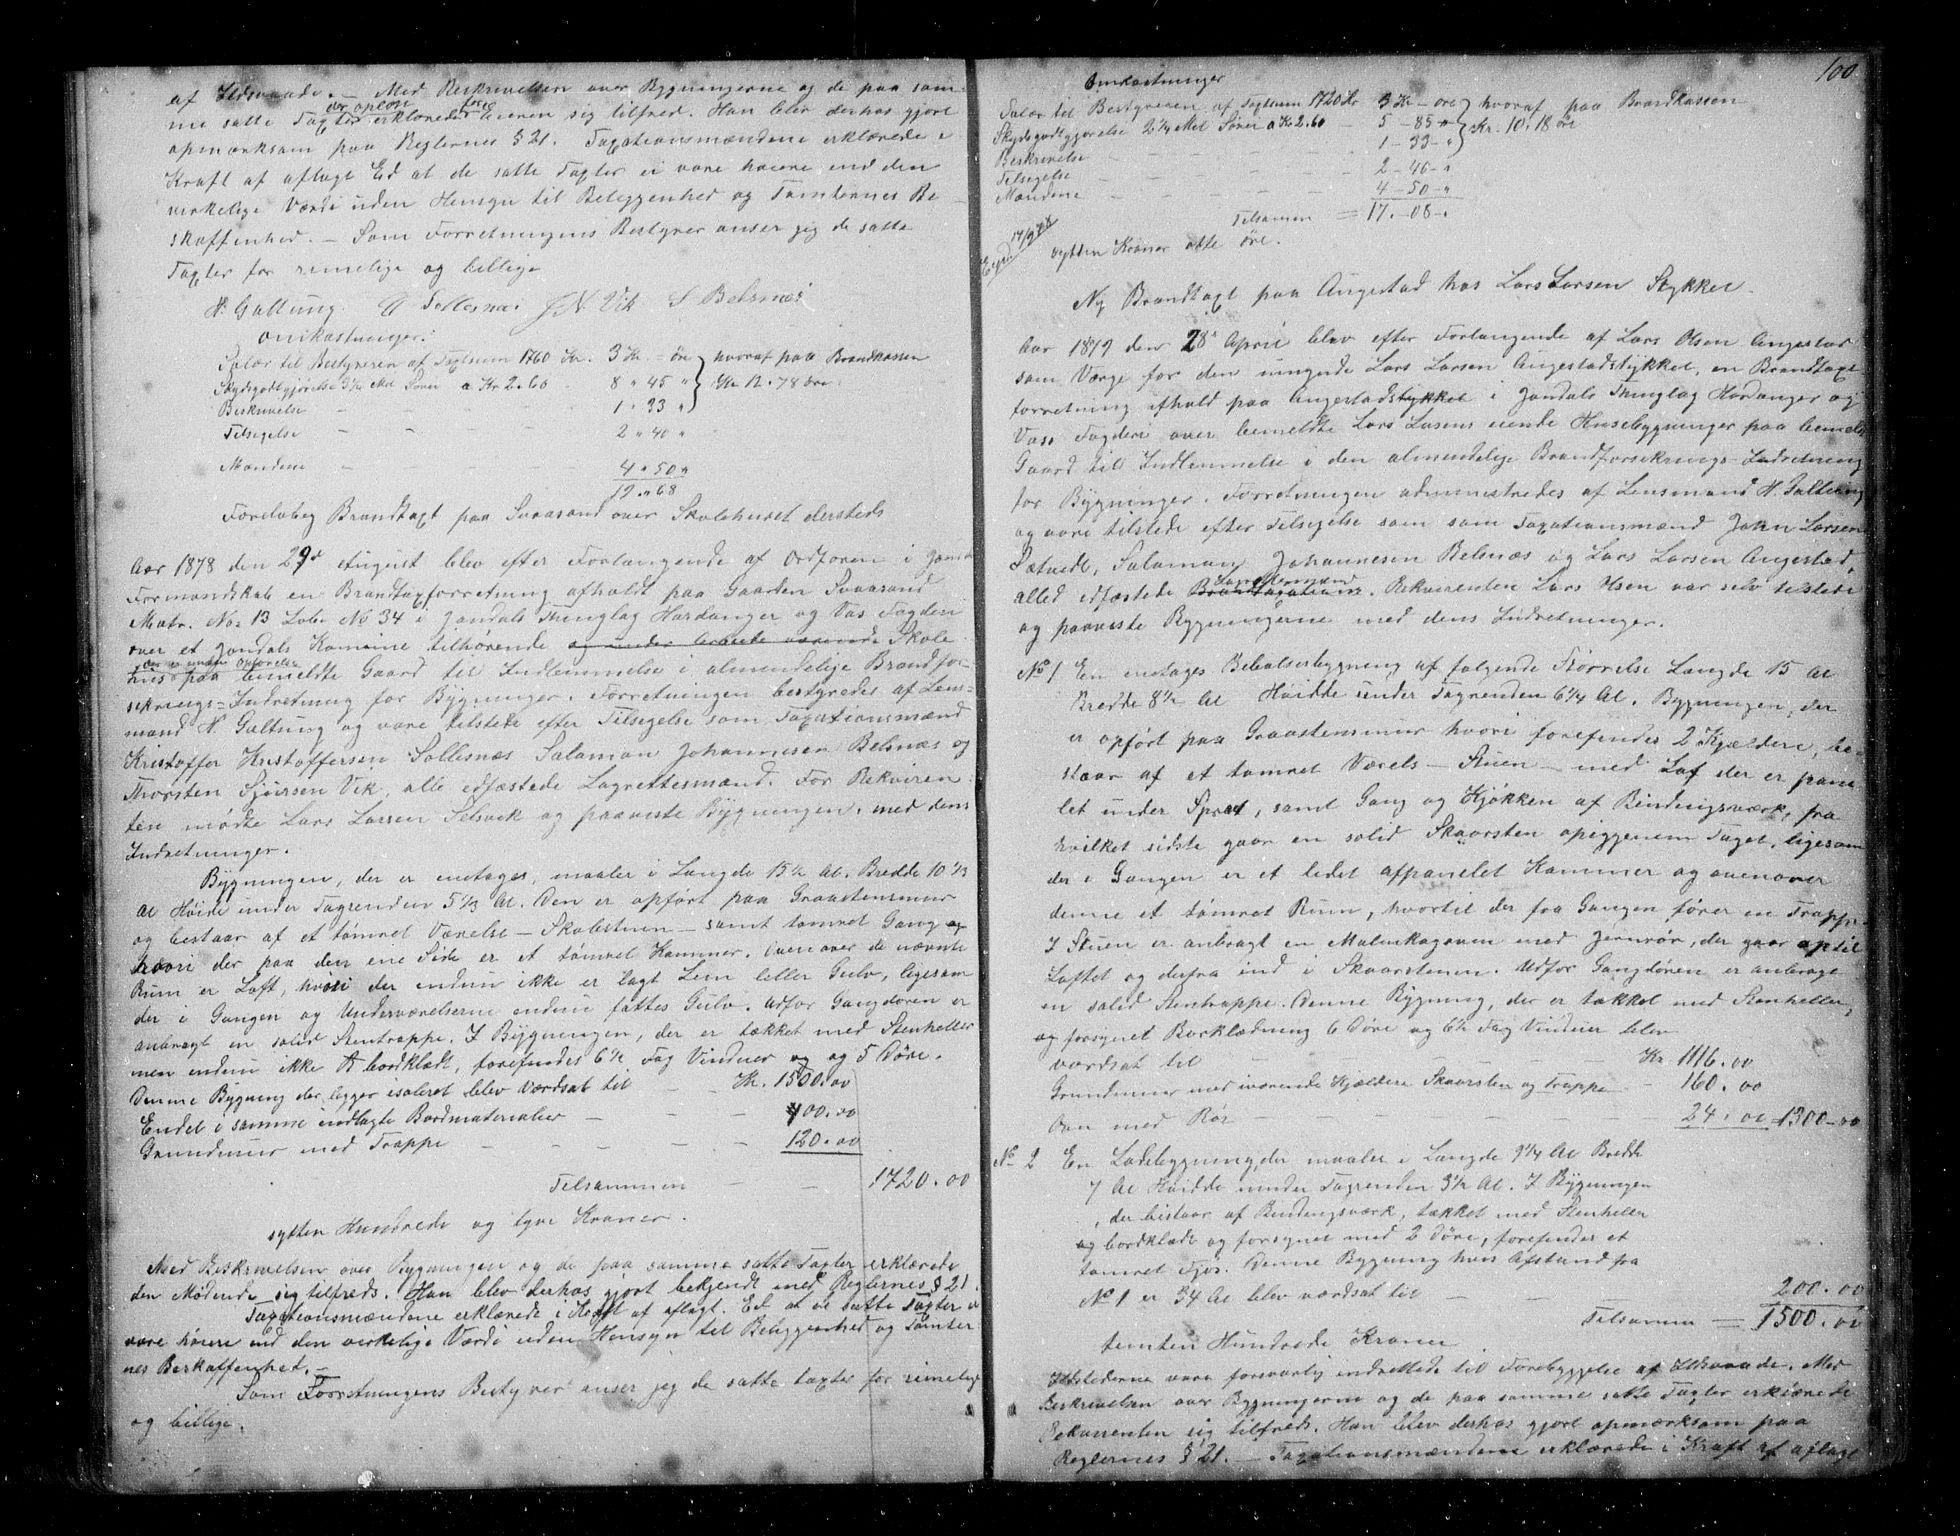 af Ildsvaade. — Med Beskrivelsen over Bygningerne og de paa sam-
me satte Taxter erklærede Eieren sig tilfred. Han blev derhos gjort
opmærksom paa Reglernes § 21. Taxationsmændene erklærede i
Kraft af aflagt Ed at de satte Taxter ei vare høiere end den
virkelige Værdi uden Hensyn til Beleggenhed og Tomternes Be-
skaffenhed. — Som Forretningens Bestyrer anser jeg de satte
Taxter for rimelige og billige
H. Galtung. Sollesnes J N Vik S Belsnæs
Omkostninger:
Salær til Bestyreren af Taxtsum 1760 Kr. 3 Kr. — øre } hvoraf paa Brandkassen
Skydsgodtgjørelse 3¼ Mil Søvei a Kr 2.60 8 " 45 " } Kr 12.78 øre.
Beskrivelse — — — 1 " 33 " }
Tilsigelse — — — 2 " 40 "
Mændene — — — 4 " 50 "
19 " 68
Foreløbig Brandtaxt paa Svaasand over Skolehuset dersteds
Aar 1878 den 29de August blev efter Forlangende af Ordføren i Jondal
Formandskab en Brandtaxtforretning afholdt paa Gaarden Svaasand
Matr. No. 13 Løbe No 34 i Jondals Thinglag Hardanger og Vos Fogderi
over et Jondals Komune tilhørende og under Arbeide værende Skole-
der er under Opførelse
hus paa bemeldte Gaard til Indlemmelse i almendelige Brandfor-
sikrings-Indretning for Bygninger. Forretningen bestyredes af Lens-
mand H. Galtung og vare tilstede efter Tilsigelse som Taxationsmænd
Kristoffer Kristoffersen Sollesnæs Salamon Johannesen Belsnæs og
Thorsten Sjursen Vik, alle edfæstede Lagrettesmænd. For Rekviren-
ten mødte Lars Larsen Selsvik og paaviste Bygningen, med dens
Indretninger.
Bygningen, der er enetages, maaler i Længde 15½ Al. Bredde 10 1/3
Al Høide under Tagrenden 5 1/3 Al. Den er opført paa Graastensmur
og bestaar af et tømret Værelse — Skolestuen — samt tømret Gang og
hvori der paa den ene Side er et tømret Kammer. Ovenover de nævnte
Rum er Loft, hvori der endnu ikke er lagt Lem eller Gulv, ligesom
der i Gangen og Underværelserne endnu fattes Gulv. Udfor Gangdøren er
anbragt en solid Stentrappe. I Bygningen, der er tækket med Stenheller
men endnu ikke bordklædt, forefindes 6½ Fag Vinduer og og 5 Døre.
Denne Bygning der ligger isoleret blev Værdsat til — Kr. 1500.00
Endel i samme indlagte Bordmaterialier — — — 100.00
Grundmur med Trappe — — — 120.00
Tilsammen — — 1720.00
sytten Hundrede og tyve Kroner.
Med Beskrivelsen over Bygningen og de paa samme satte Taxter erklærede
den Mødende sig tilfreds. Han blev derhos gjort bekjendt med Reglernes § 21.
Taxationsmændene erklærede i Kraft af aflagt Ed at de satte Taxter ei
vare høiere end den virkelige Værdi uden Hensyn til Beliggenhed og Tomter-
nes Beskaffenhet. —
Som Forretningens Bestyrer anser jeg de satte taxter for rimelige
og billige.
100
Omkostninger
Salær til Bestyreren af Taxtsum 1720 Kr 3 Kr — øre } hvoraf paa Brandkassen
Skydsgodtgjørelse 2¼ Mil Søvei a Kr 2.60 — 5 — 85 " } Kr. 10.18 øre
Beskrivelse — — — 1 — 33 — " }
Tilsigelse — — — 2 — 40 — "
Mændene — — — 4 — 50 — "
Tilsamen = 17. — 08 — .
sytten Kroner otte øre.
Ny Brandtaxt paa Angestad hos Lars Larsen Stykket.
Aar 1879 den 28de April blev efter Forlangende af Lars Olsen Angestad
som Værge for den umyndige Lars Larsen Angestadstykket, en Brandtaxt
forretning afhold paa Angestadstykket i Jondals Thinglag Hardanger og
Voss Fogderi over bemeldte Lars Larsens eiende Husebygninger paa bemeldte
Gaard til Indlemmelse i den almendelige Brandforsikrings-Indretning
for Bygninger. Forretningen administredes af Lensmand H. Galtung
og vare tilstede efter Tilsigelse som som Taxationsmænd John Larsen
Sætvedt, Salamon Johannesen Belsnæs og Lars Larsen Angestad,
Laugrettesmænd
alled edfæstede Brandtaxations. Rekvirenten Lars Olsen var selv tilstede
og paaviste Bygningerne med dens Indretninger.
No 1 En enetages Beboelsesbygning af følgende Størrelse Længde 15 Al
Bredde 8½ Al Høidde under Tagrenden 6¼ Al. Bygningen, der
er opført paa Graastensmur hvori forefindes 2 Kjeldere, be-
staar af et tømret Værels — Stuen — med Loft der er pane
let under Sprat, samt Gang og Kjøkken af Bindingsværk, fra
hvilket sidste gaar en solid Skaarsten opiggjenem Taget, ligesom
der i Gangen er et lidet afpanelet Kammer og ovenover
denne et tømret Rum, hvortil der fra Gangen fører en Trappe.
I Stuen er anbragt en Malmkagovn med Jernrør, der gaar op til
Loftet og derfra ind i Skaarstenen. Udfor Gangdøren er anbragt
en solid Stentrappe. Denne Bygning, der er tækket med Stenheller,
og forsynet Bordklædning 6 Døre og 6½ Fag Vinduer blev
værdsat til — — — Kr. 1116.00
Grundmur med iværende Kjeldere Skaarsten og Trappe — 160.00
Ovn med Rør — — — 24.00 = 1300.00
No 2 En Ladebygning, der maaler i Længde 9¼ Al Bredde
7 Al Høidde under Tagrenden 3½ Al. I Bygningen
, der bestaar af Bindingsværk, tækket med Stenheller
og bordklædt og forsynet med 2 Døre, forefindes et
tømret Fjøs. Denne Bygning hvis Afstand fra
No 1 er 34 Al blev værdsat til — — — 200.00
Tilsamen = 1500.00
femten Hundrede Kroner
Ildstederne vare forsvarlig indrettede til Forebyggelse af Ildsvaade. Med
Beskrivelsen over Bygningerne og de paa samme satte Taxter erklærede
Rekvirenten sig tilfreds. Han blev derhos gjort opmærksom paa
Reglernes § 21. — Taxationsmændene erklærede i Kraft af aflagt